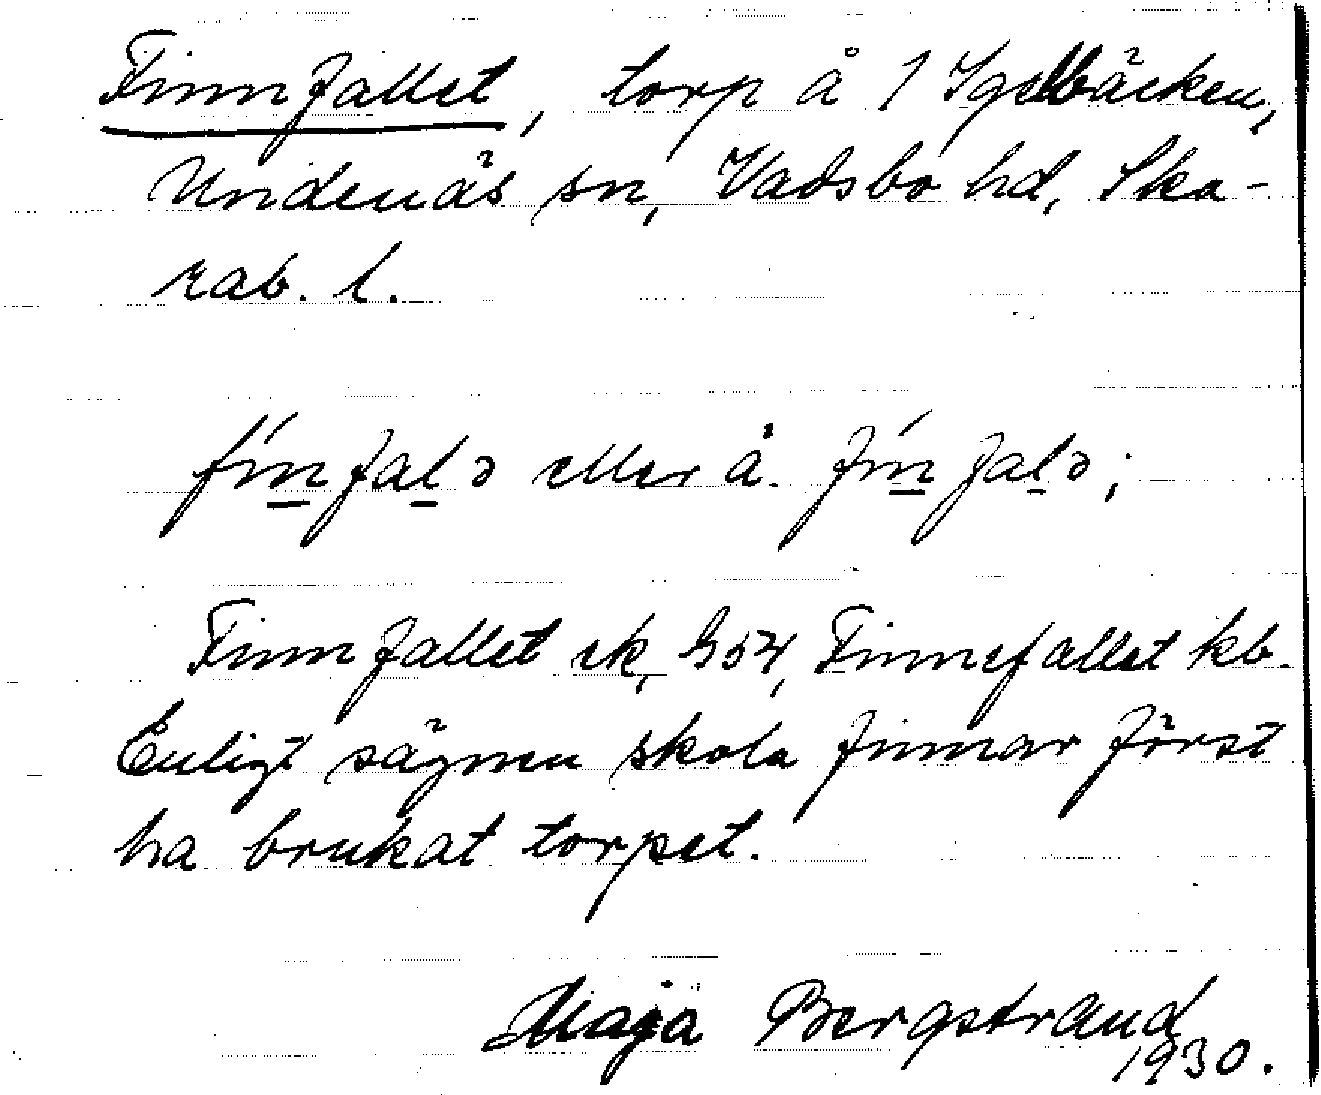 Finnfallet, torp å 1 Igelbäcken,
Undenäs sn, Vadsbo hd, Ska-
rab. l.
fínfalə eller å. fínfalə;
Finnfallet ek, Finnefallet kb.
Enligt sägnen skola finnar först
ha brukat torpet.
Maja Bergstrand
1930.